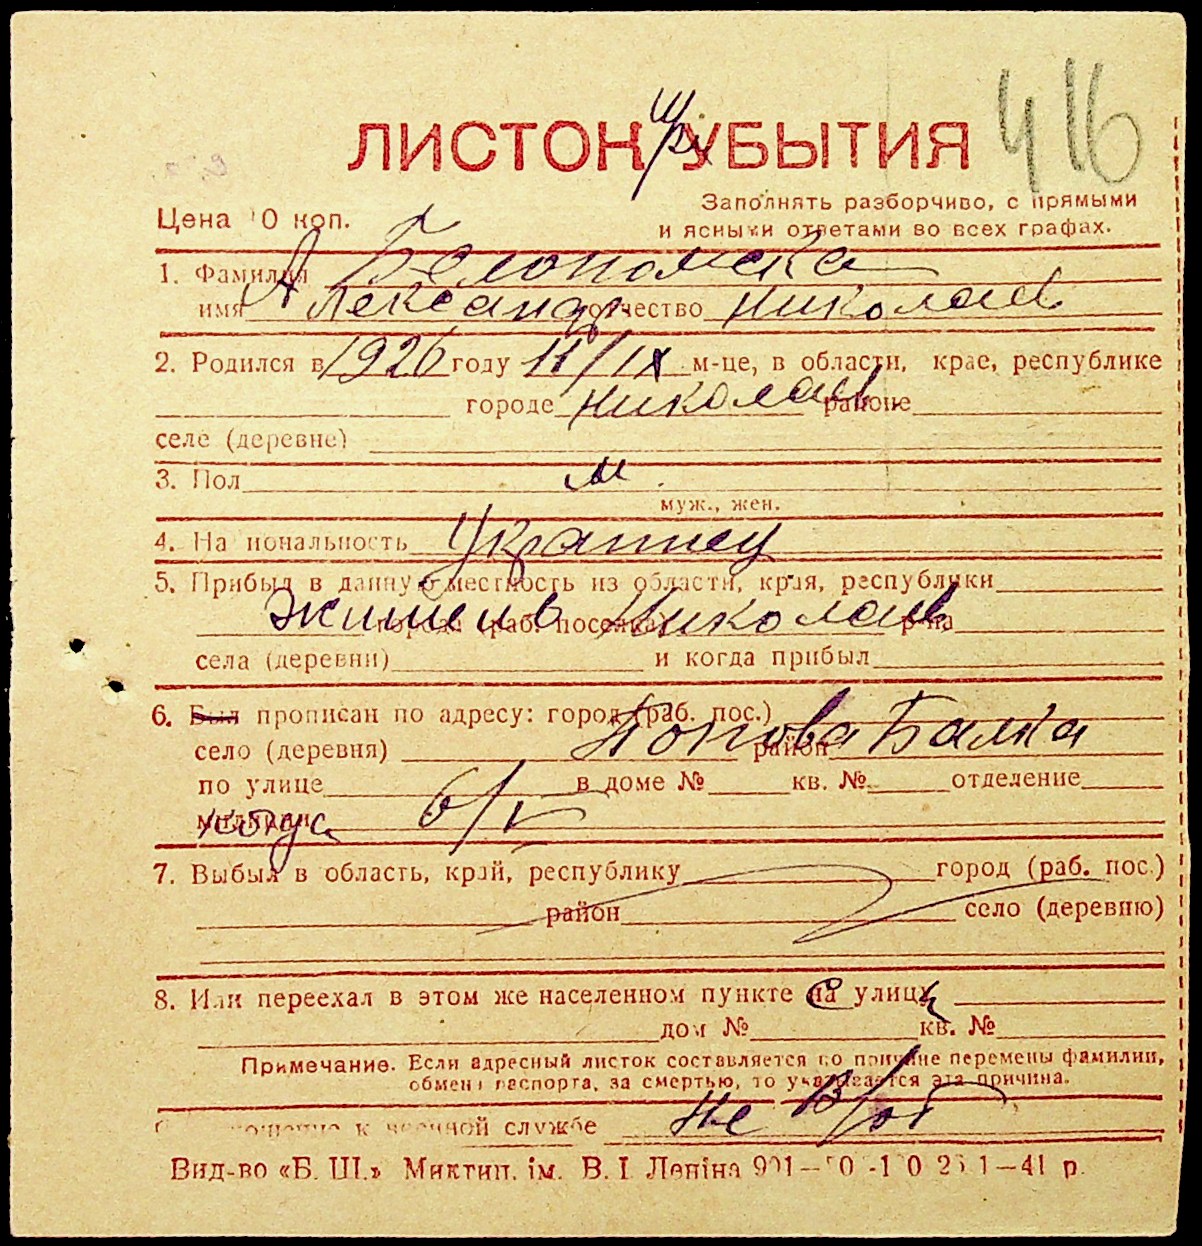 416
ЛИСТОК УБЫТИЯ
Цена 10 коп.
Заполнять разборчиво, с прямыми
и ясными ответами во всех графах.
1. Фамилия
имя Александр отчество Николаев
2. Родился в 1926 году 11/IX м-це, в области, крае, республике
городе Николаев районе
селе (деревне)
3. Пол м.
муж., жен.
4. Национальность Украинец
5. Прибыл в данную местность из области, края, республики
города (раб. поселка) Николаев р-на
села (деревни) и когда прибыл
6. Был прописан по адресу: город (раб. пос.)
село (деревня) Попова Балка район
по улице в доме № кв. № отделение
милиции когда 6/V
7. Выбыл в область, край, республику город (раб. пос.)
район село (деревню)
8. Или переехал в этом же населенном пункте на улицу
дом № кв. №
Примечание. Если адресный листок составляется по причине перемены фамилии,
обмена паспорта, за смертью, то указывается эта причина.
к военной службе не в/об
Вид-во «Б. Ш.» Миктип. ім. В. І. Леніна